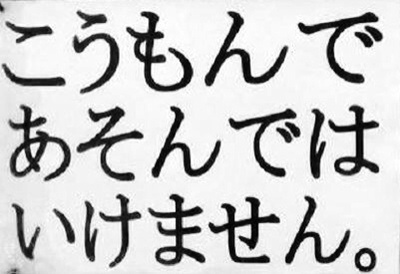 こうもんで
あそんでは
いけません。